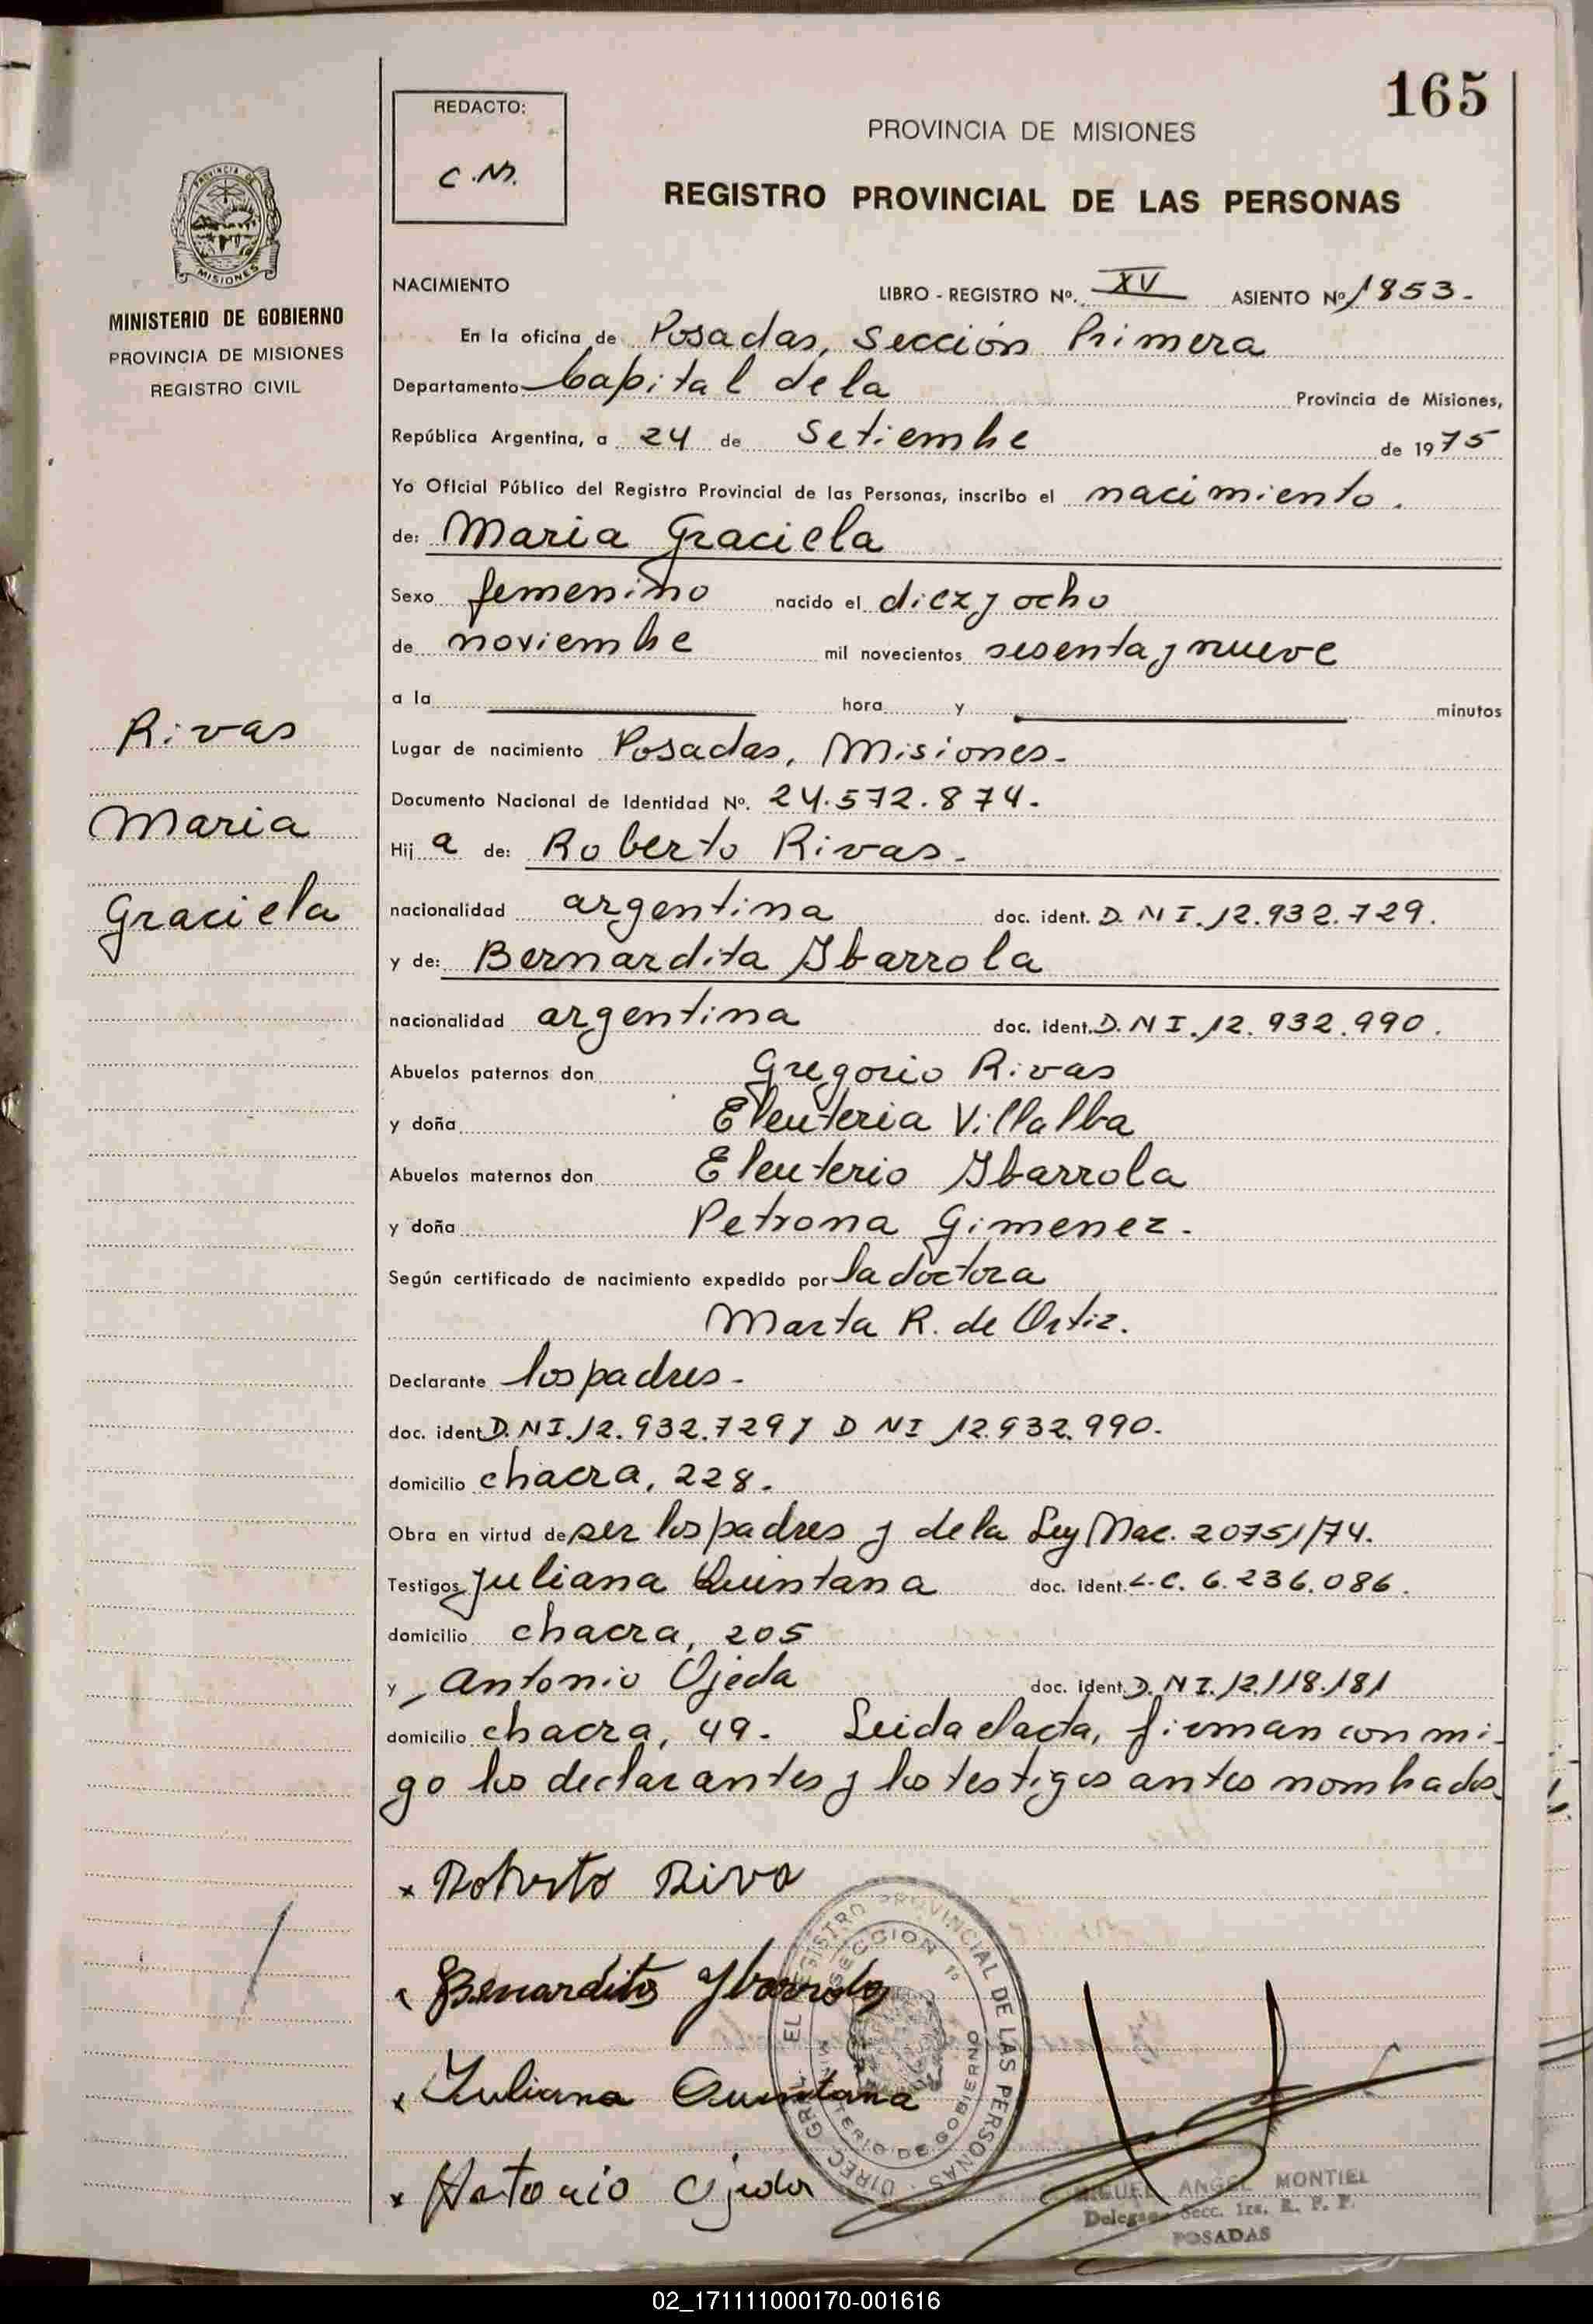 165
REDACTO:
C.M.
PROVINCIA DE MISIONES
REGISTRO PROVINCIAL DE LAS PERSONAS
PROVINCIA DE
MISIONES
MINISTERIO DE GOBIERNO
PROVINCIA DE MISIONES
REGISTRO CIVIL
NACIMIENTO
LIBRO - REGISTRO Nº. XV ASIENTO Nº 1853.
En la oficina de Posadas, Sección Primera
Departamento Capital de la Provincia de Misiones,
República Argentina, a 24 de Setiembre de 1975
Yo Oficial Público del Registro Provincial de las Personas, inscribo el nacimiento.
de: Maria Graciela
Sexo femenino nacido el diez y ocho
de noviembre mil novecientos sesenta y nueve
a la hora y minutos
Lugar de nacimiento Posadas, Misiones.
Documento Nacional de Identidad Nº. 24.572.874.
Hij a de: Roberto Rivas.
nacionalidad argentina doc. ident. D.N.I. 12.932.729.
y de: Bernardita Ibarrola
nacionalidad argentina doc. ident. D.N.I. 12.932.990.
Abuelos paternos don Gregorio Rivas
y doña Eleuteria Villalba
Abuelos maternos don Eleuterio Ibarrola
y doña Petrona Gimenez.
Según certificado de nacimiento expedido por la doctora
Marta R. de Ortiz.
Declarante los padres.
doc. ident D.N.I. 12.932.729 y D N I 12.932.990.
domicilio chacra, 228.
Obra en virtud de ser los padres y de la Ley Nac. 20751/74.
Testigos Juliana Quintana doc. ident. L.C. 6.236.086.
domicilio chacra, 205
y Antonio Ojeda doc. ident. D.N.I. 12.118.181
domicilio chacra, 49. Leida el acta, firman con mi-
go los declarantes y los testigos antes nombrados
Rivas
Maria
Graciela
x Roberto Riva
Benardita Ybarrola
x Juliana Quintana
x Antonio Ojeda
DIREC. GRAL. EL REGISTRO PROVINCIAL DE LAS PERSONAS
SECCION 1ª
MINISTERIO DE GOBIERNO
MIGUEL ANGEL MONTIEL
Delegado Secc. 1ra. R. P. P.
POSADAS
02_171111000170-001616